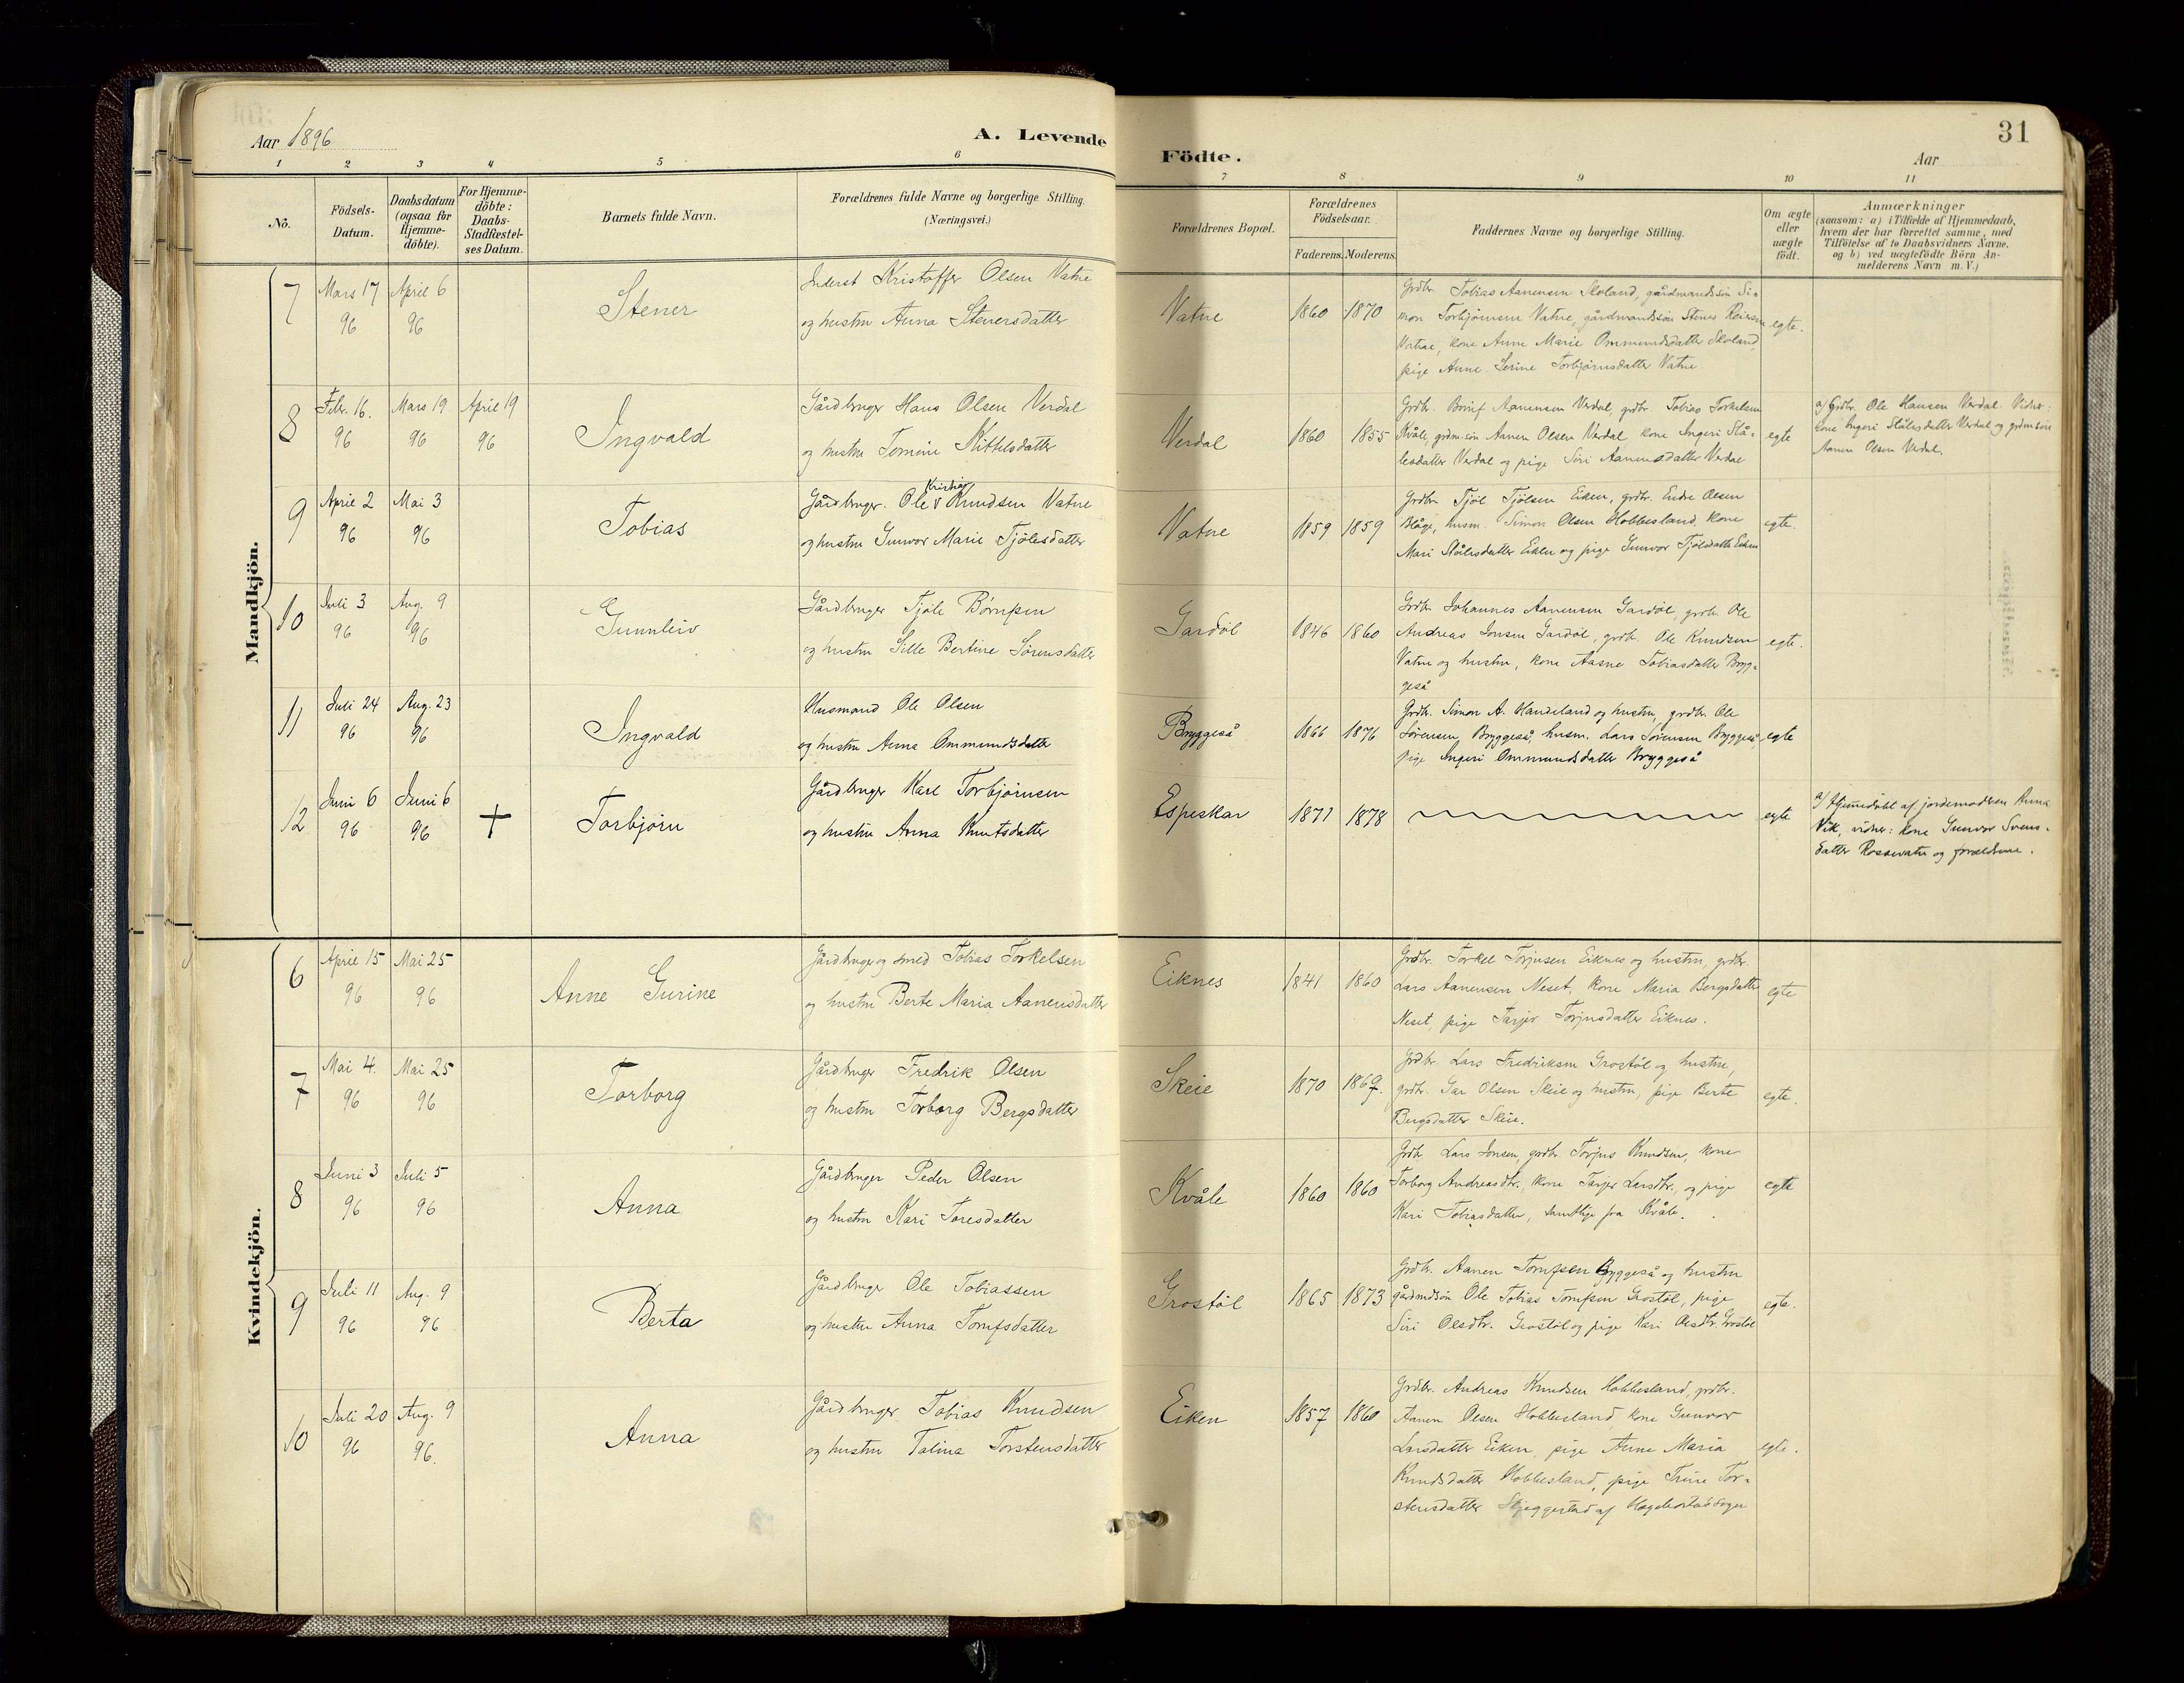 Aar 1896
A. Levende
Födte.
31
Aar
1 2 3 4 5 6 7 8 9 10 11
No.
Födsels-
Datum.
Daabsdatum
(ogsaa for
Hjemme-
döbte).
For Hjemme-
döbte:
Daabs-
Stadfæstel-
ses Datum.
Barnets fulde Navn.
Forældrenes fulde Navne og borgerlige Stilling.
(Næringsvei.)
Forældrenes Bopæl.
Forældrenes
Födselsaar.
Faderens. Moderens.
Faddernes Navne og borgerlige Stilling.
Om ægte
eller
uægte
födt.
Anmærkninger
(saasom: a) i Tilfælde af Hjemmedaab,
hvem der har forrettet samme, med
Tilföielse af to Daabsvidners Navne.
og b) ved uægtefödte Börn An-
melderens Navn m. V.)
Mandkjön.
7
Mars 17
96
April 6
96
Stener
Inderst Kristoffer Olsen Vatne
og hustru Anna Stenersdatter
Vatne
1860 1870
Grdbr. Tobias Aanensen Skoland, gårdmandssøn Si-
mon Torbjörnsen Vatne, gårdmandssøn Stener Reiersen
Vatne, kone Anne Marie Ommundsdatter Skoland,
pige Anne Serine Torbjørnsdatter Vatne
egte.
8
Febr. 16.
96
Mars 19
96
April 19
96
Ingvald
Gårdbruger Hans Olsen Verdal
og hustru Tomine Kittelsdatter
Verdal
1860 1855
Grdbr. Aanensen Verdal, grdbr. Tobias Torkelsen
Kvåle, grdm.søn Aanen Olsen Verdal, kone Ingeri Stå-
lesdatter Verdal og pige Siri Aanensdatter Verdal
egte
a) Grdbr. Ole Hansen Verdal. Vidner:
kone Ingeri Stålesdatter Verdal og grdmsøn
Aanen Olsen Verdal.
9
April 2
96
Mai 3
96
Tobias
Kristian
Gårdbruger Ole v Knudsen Vatne
og hustru Gunvor Marie Tjølesdatter
Vatne
1859 1859
Grdbr. Tjøl Tjølsen Eiken, grdbr. Endre Olsen
husm. Simon Olsen Hobbesland, kone
Mari Stålesdatter Eiken og pige Gunvor Tjölsdatter Eiken
egte.
10
Juli 3
96
Aug. 9
96
Gunnleiv
Gårdbruger Tjøle
og hustru Sille Bertine Sørensdatter
Gardøl
1846 1860
Grdbr. Johannes Aanensen Gardøl, grdbr. Ole
Andreas Jonsen Gardøl, grdbr. Ole Knudsen
Vatne og hustru, kone Aasne Tobiasdatter Bryg-
geså
egte.
11
Juli 24
96
Aug. 23
96
Ingvald
Husmand Ole Olsen
og hustru Anna Ommundsdatter
Bryggeså
1866 1876
Grdbr. Simon A. Haadeland og hustru, grdbr. Ole
Sørensen, Bryggeså, husm. Lars Sørensen Bryggeså,
pige Ingeri Ommundsdatter Bryggeså
egte
12
Juni 6
96
Juni 6
96
+
Torbjørn
Gårdbruger Karl Torbjörnsen
og hustru Anna Knutsdatter
Espeskar
1871 1878
egte
a) Hjemmedøbt af jordemoderen Anna
Vik, vidner: kone Gunvor Svens-
datter Rossevatn og forældrene.
Kvindekjön.
6
April 15
96
Mai 25
96
Anne Gurine
Gårdbruger og smed Tobias Torkelsen
og hustru Berte Maria Aanensdatter
Eiknes
1841 1860
Grdbr. Torkel Torjusen Eiknes og hustru, grdbr.
Lars Aanensen Neset, kone Maria Bergsdatter
Neset, pige Tarjer Torjusdatter Eiknes.
egte
7
Mai 4.
96
Mai 25
96
Torborg
Gårdbruger Fredrik Olsen
og hustru Torborg Bergsdatter
Skeie
1870 1869.
Grdbr. Lars Fredriksen Grostøl og hustru,
grdbr. Olsen Skeie og hustru, pige Berte
Bergsdatter Skeie.
egte.
8
Juni 3
96
Juli 5
96
Anna
Gårdbruger Peder Olsen
og hustru Kari Toresdatter
Kvåle
1860 1860
Grdbr. Lars Jonsen, grdbr. Torjus Knudsen, kone
Torborg Andreasdtr., kone Tarjer Larsdtr., og pige
Kari Tobiasdatter, samtlige fra Kvåle.
egte
9
Juli 11
96
Aug. 9
96
Berta
Gårdbruger Ole Tobiassen
og hustru Anna
Grostøl
1865 1873
Grdbr. Aanen Bryggeså og hustru
gårdmdsøn Ole Tobias Grostøl, pige
Siri Olsdtr. Grostøl og pige Kari Olsdtr. Grostøl
egte.
10
Juli 20
96
Aug. 9
96.
Anna
Gårdbruger Tobias Knudsen
og hustru Talina Torstensdatter
Eiken
1857 1860
Grdbr. Andreas Knudsen Hobbesland, grdbr.
Aanen Olsen Hobbesland, kone Gunvor
Larsdatter Eiken, pige Anne Maria
Knudsdatter Hobbesland, pige Trine Tor-
stensdatter Skjeggestad af Hægebostad sogn
egte.